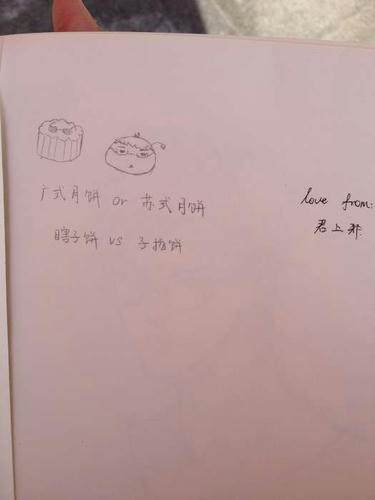 广式月饼 or 苏式月饼
瞎子饼 vs 子拍饼
love from:
君上邪